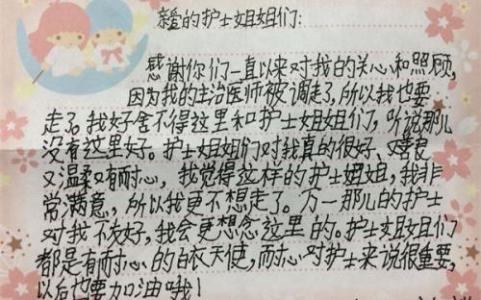 亲爱的护士姐姐们：
感谢你们一直以来对我的关心和照顾，
因为我的主治医师被调走了，所以我也要
走了。我好舍不得这里和护士姐姐们，听说那儿
没有这里好。护士姐姐们对我真的很好、善良
又温柔又有耐心，我觉得这样的护士姐姐，我非
常满意，所以我更不想走了。万一那儿的护士
对我不友好，我会更想念这里的。护士姐姐们
都是有耐心的白衣天使，而耐心对护士来说很重要，
以后也要加油哦！